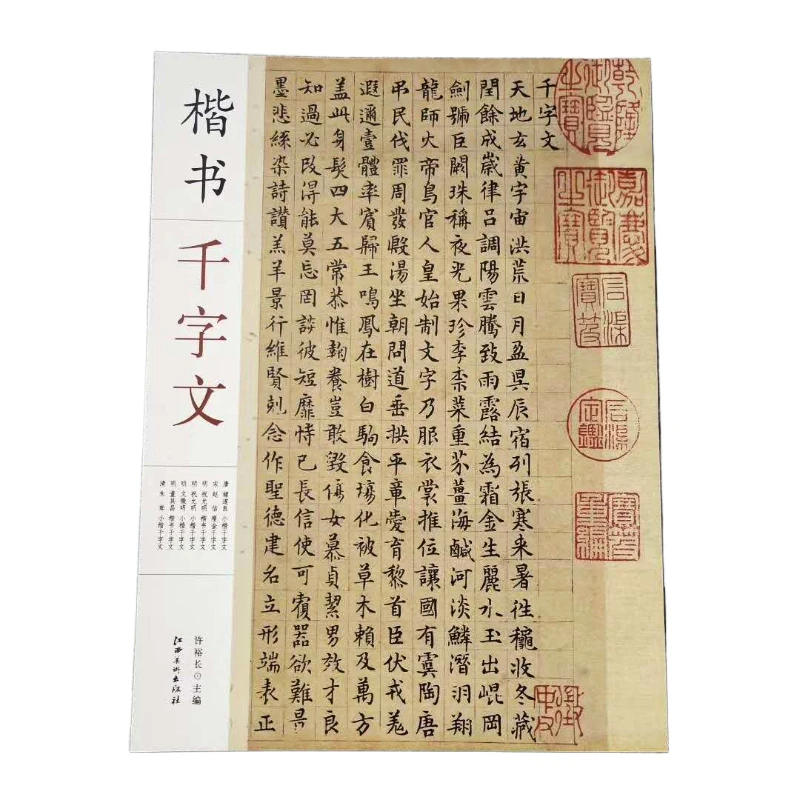 楷书
千字文
唐 褚遂良 小楷千字文
宋 赵佶 瘦金千字文
明 祝允明 楷书千字文
明 祝允明 小楷千字文
明 文徵明 小楷千字文
明 董其昌 楷书千字文
清 朱耷 小楷千字文
许裕长 ⊙ 主编
江西美术出版社
千字文
天地玄黃宇宙洪荒日月盈昃辰宿列張寒来暑往穐收冬藏
閏餘成歲律吕調陽雲騰致雨露結為霜金生麗水玉出崐岡
劍號巨闕珠稱夜光果珍李柰菜重芥薑海鹹河淡鱗潛羽翔
龍師火帝鳥官人皇始制文字乃服衣裳推位讓國有虞陶唐
弔民伐罪周發殷湯坐朝問道垂拱平章愛育黎首臣伏戎羌
遐邇壹體率賓歸王鳴鳳在樹白駒食場化被草木賴及萬方
盖此身髮四大五常恭惟鞠養豈敢毀傷女慕貞絜男效才良
知過必改得能莫忘罔談彼短靡恃己長信使可覆器欲難量
墨悲絲染詩讚羔羊景行維賢剋念作聖德建名立形端表正
乾隆御覽之寶
嘉慶御覽之寶
石渠寶笈
石渠定鑑
寶笈重編